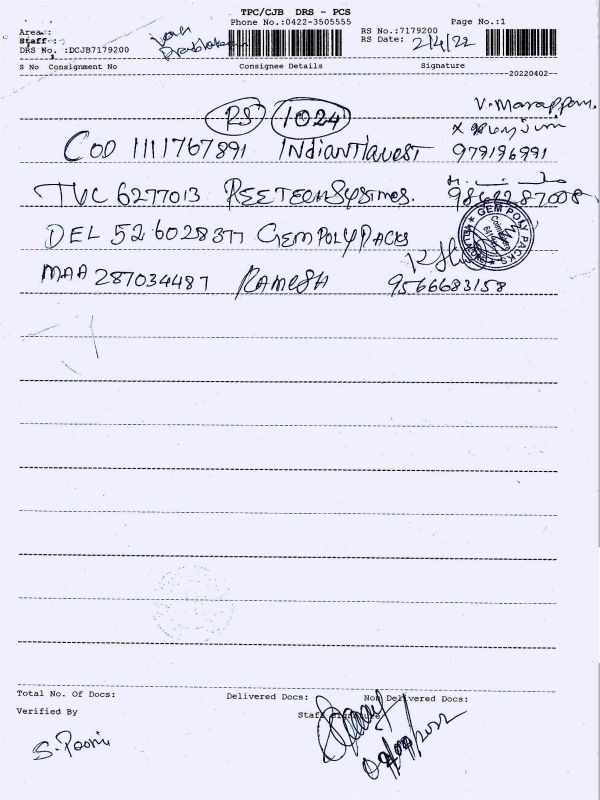 TPC/CJB DRS - PCS
Phone No.:0422-3505555 Page No.:1
Area:
Staff:
DRS No. :DCJB7179200
RS No.:7179200
RS Date: 2/4/22
S No Consignment No Consignee Details Signature
20220402
RS 1024
V. Marappan.
COD 1111767891 Indian 979196991
TVC 6277013 REETECH Systimes. 9862287008
DEL 526028377 GEM POLY PACKS
GEM POLY PACKS
MAA 287034487 RAMESH 9566683158
Total No. Of Docs: Delivered Docs: Non Delivered Docs:
Verified By Staff Signature
S. Poorni